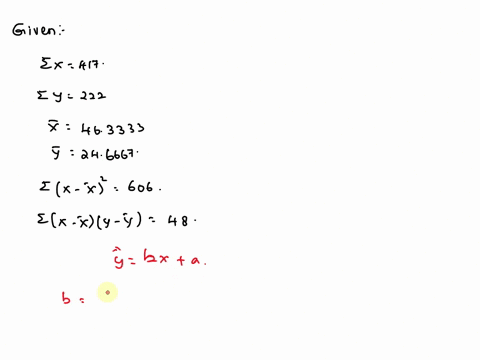 Given:-
Σx = 417.
Σy = 222
x̄ = 46.3333
ȳ = 24.6667.
Σ(x - x̄)² = 606.
Σ(x - x̄)(y - ȳ) = 48.
ŷ = bx + a.
b =